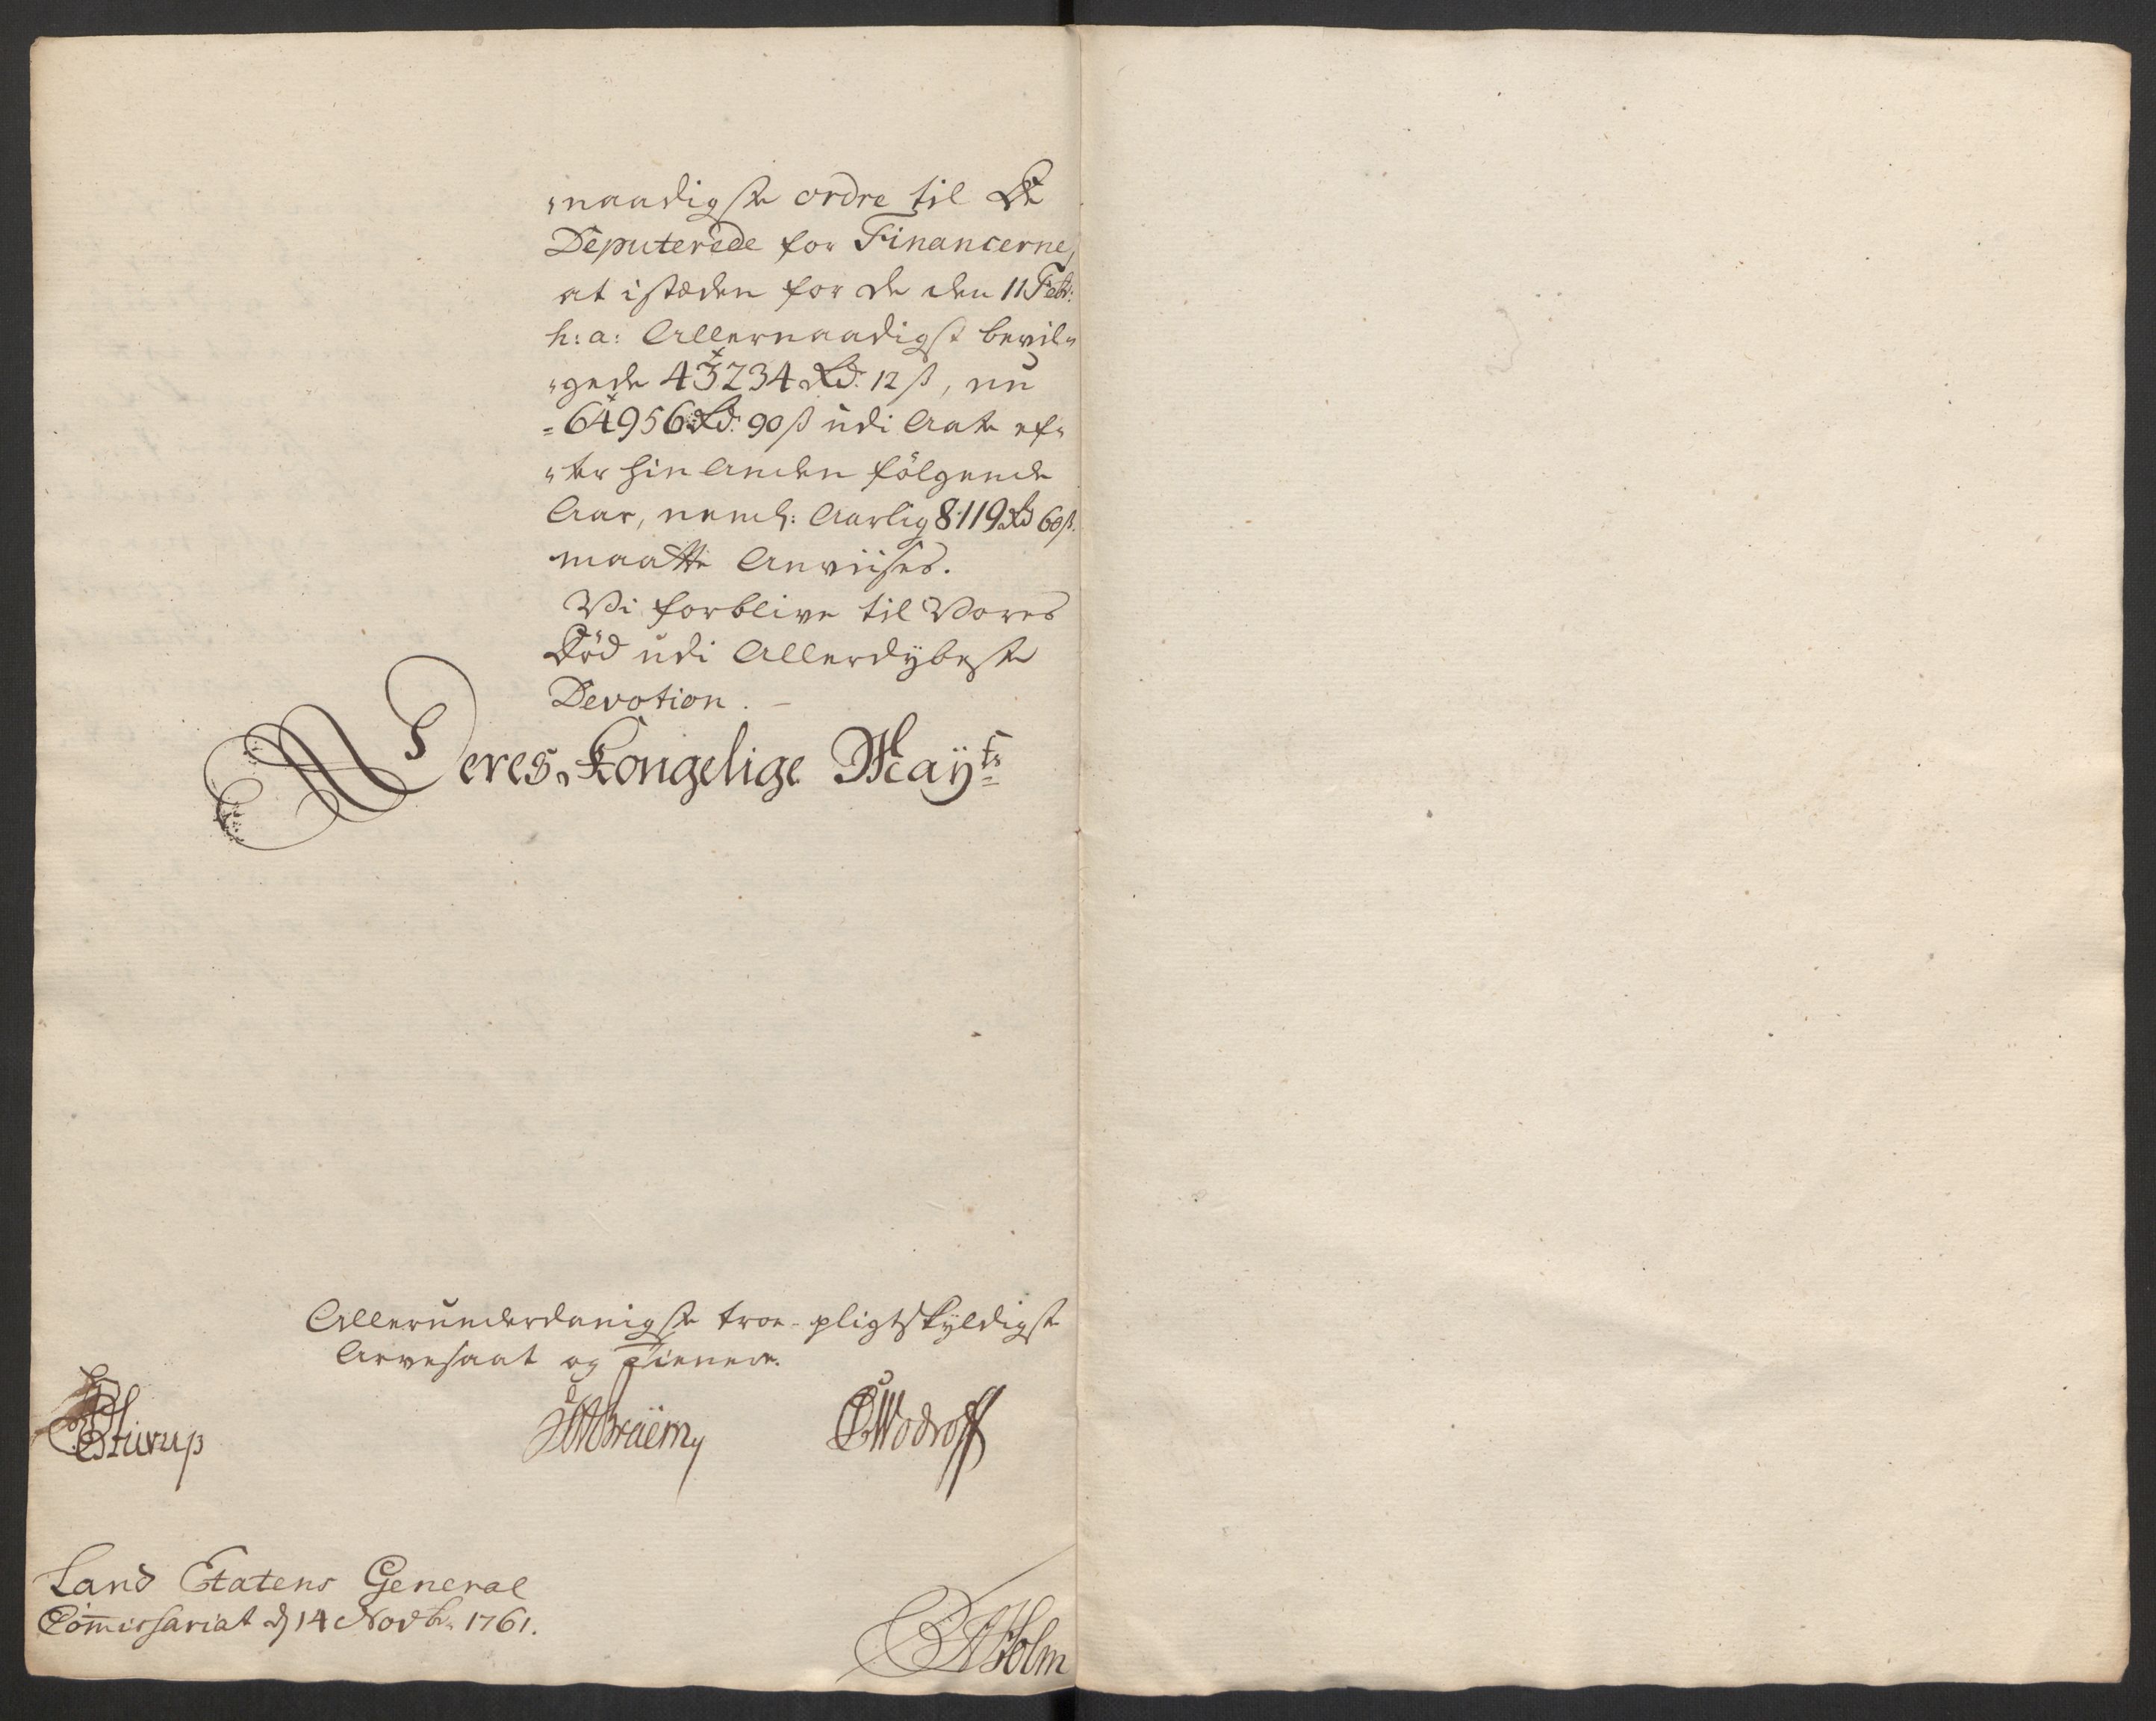 "naadigste ordre til De
Deputerede for Financerne,
at istæden for de den 11 Febr:
h: a: Allernaadigst bevil„
„gede 43234 Rd. 12 ß, nu
=64956 Rd. 90 ß udi Aate ef„
„ter hin Anden fölgende
Aar, neml: Aarlig 8119 Rd 60 ß.
maatte Anviises.
Vi forblive til Vores
Död udi Allerdÿbeste
Devotion. –
Deres Kongelige Maÿts
Allerunderdanigste troe-pligtskÿldigste
Arvesaat og Tienere.
Stürup
Wodroff
Land Etatens General
Com̅issariat d 14 Novbr. 1761.
Holm